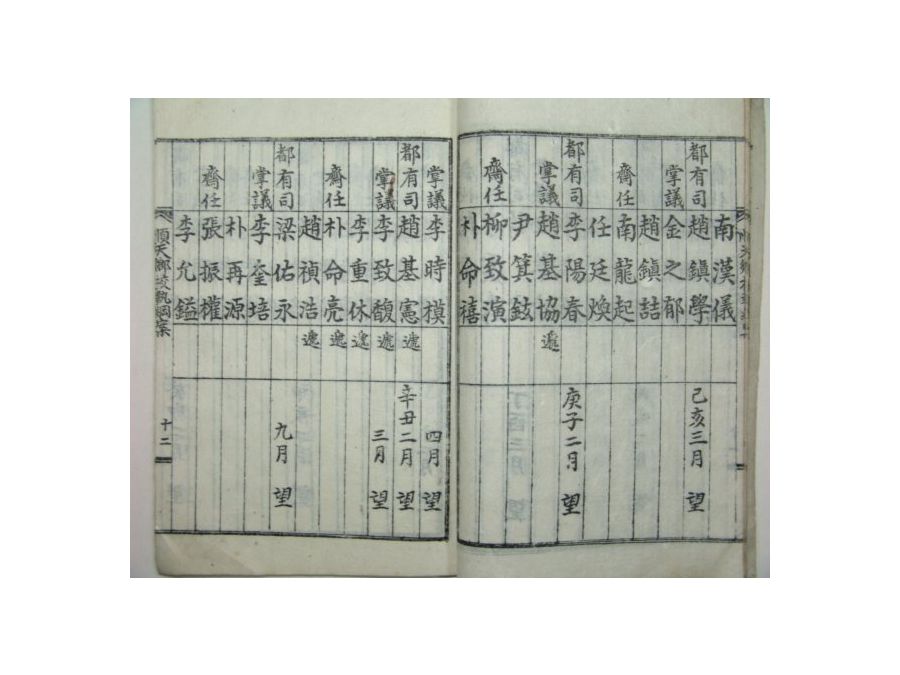 南漢儀
都有司 趙鎭學 己亥三月 望
掌議 金之郁
趙鎭詰
齋任 南龍起
任廷煥
都有司 李陽春 庚子二月 望
掌議 趙基協 遞
尹箕鉉
齋任 柳致演
朴命禧
掌議 李時模 四月 望
都有司 趙基憲 遞 辛丑二月 望
掌議 李致馥 遞 三月 望
李重休 遞
齋任 朴命亮 遞
趙禎浩 遞
都有司 梁佑永 九月 望
掌議 李奎培
朴再源
齋任 張振權
李允鎰
順天鄕校執綱案 十二